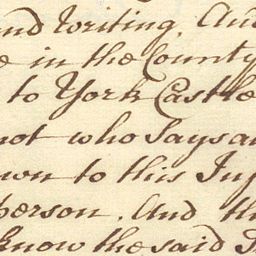 nd Writing. And
e in the County
to York Castle
not who Says a
wn to this In
person. And th
know the said